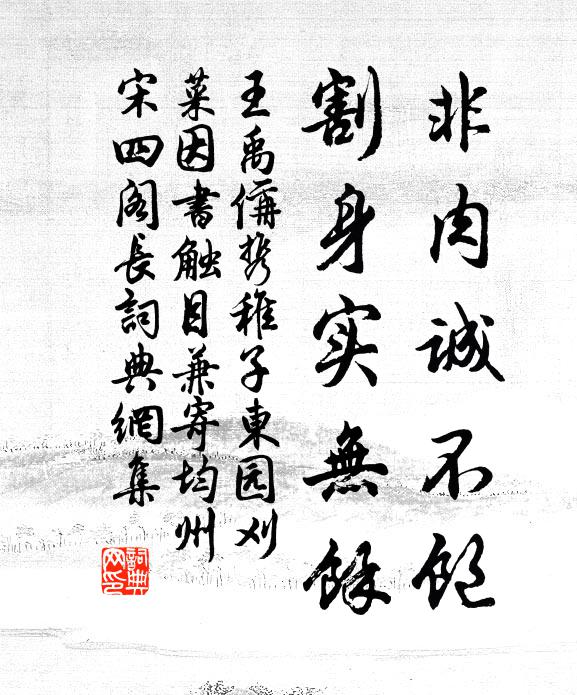 非肉誠不飽
割身实無餘
王禹偁携稚子東园刈
菜因書触目兼寄均州
宋四阁長詞典網集
詞典
网印